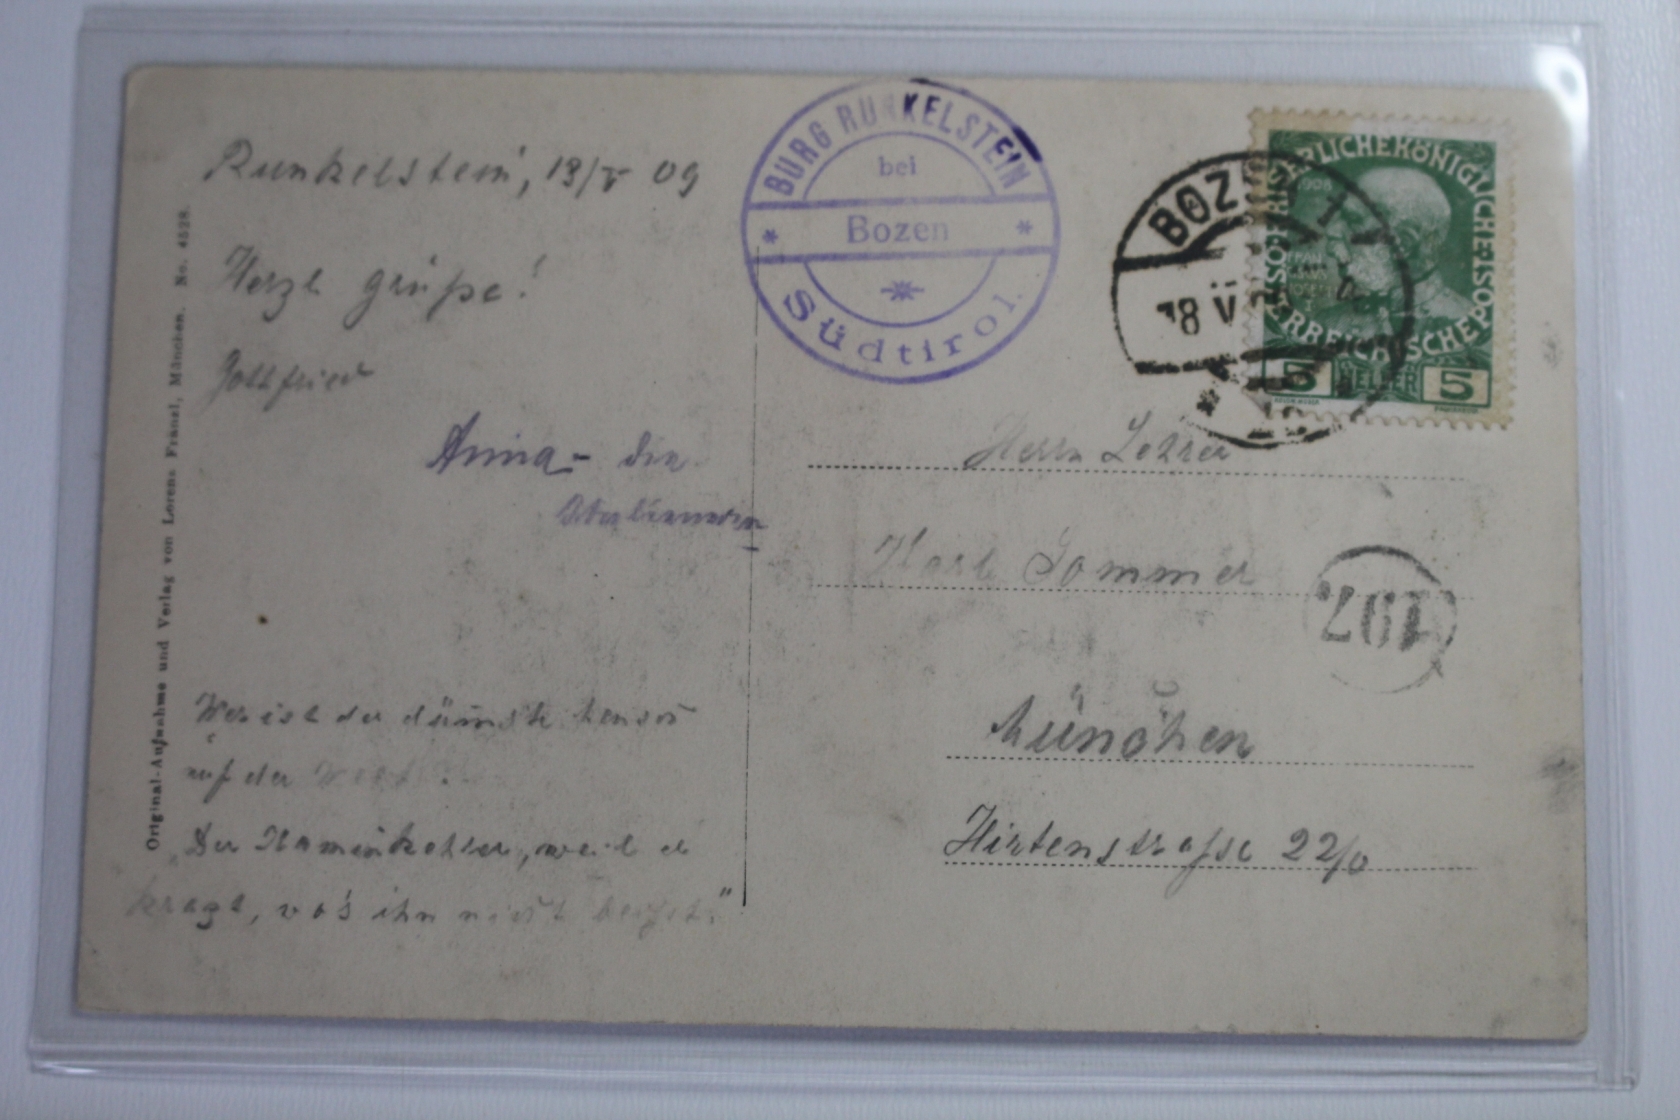 Runkelstein, 18/V 09
Herzl grüße!
Gottfried
Anna - die
Wer ist der dümste
auf der Welt?
"Der Kaminkehrer, weil er
kragt, wo's ihn nicht beißt."
Original-Aufnahme und Verlag von Lorenz Fränzl, München. No. 4528.
BURG RUNKELSTEIN
bei
Bozen
Südtirol.
BOZEN 1
18 V
KAISERLICHEKÖNIGLICHE
ÖSTERREICHISCHEPOST
1908
5 HELLER 5
Herrn Lehrer
Karl Sommer
197
München
Hirtenstraße 22/0